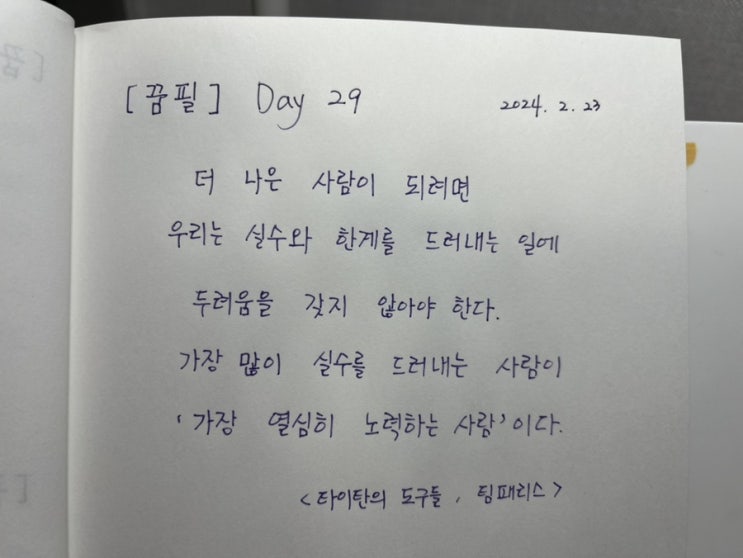 [꿈필] Day 29 2024. 2. 23
더 나은 사람이 되려면
우리는 실수와 한계를 드러내는 일에
두려움을 갖지 않아야 한다.
가장 많이 실수를 드러내는 사람이
'가장 열심히 노력하는 사람'이다.
<타이탄의 도구들, 팀패리스>